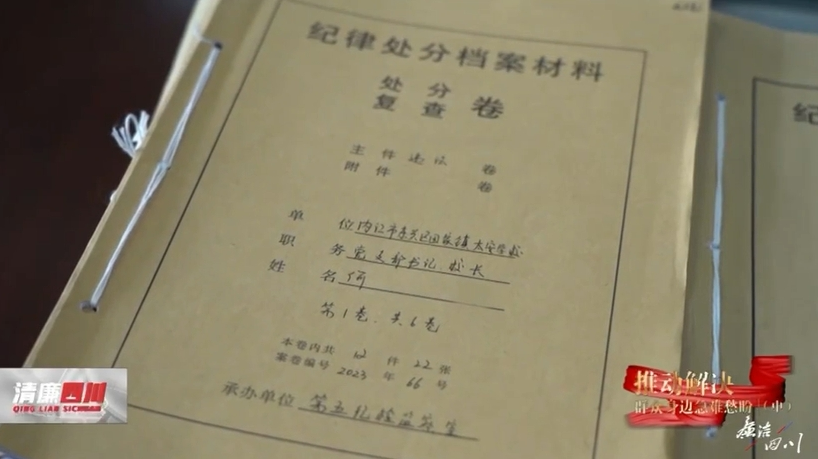 纪律处分档案材料
处分
复查 卷
主件 违法 卷
附件 卷
单位 内江市东兴区田家镇太安学校
职务 党支部书记、校长
姓名 何
第1卷、共6卷
本卷内共 12 件 22 张
案卷编号 2023 年 66 号
承办单位 第五纪检监察室
纪
清廉四川
QING LIAN SICHUAN
推动解决
群众身边急难愁盼(中)
廉洁四川